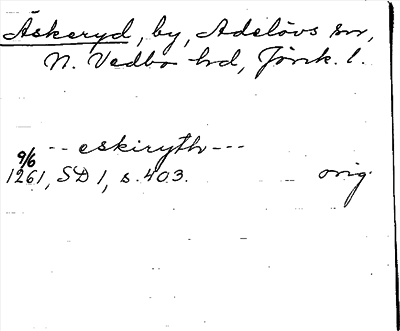 Äskeryd, by, Adelövs sn,
N. Vedbo hd, Jönk. l.
-- eskiryth ---
9/6
1261, SD 1, s. 403. orig.